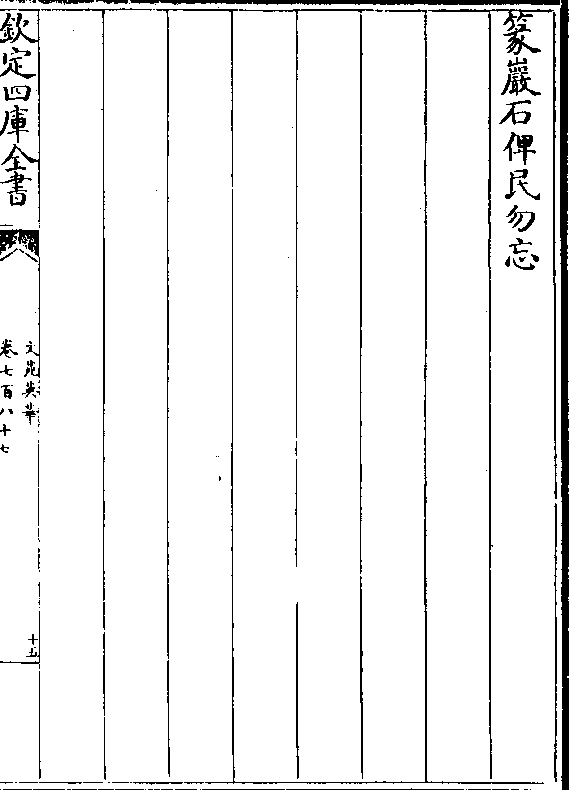 篆巖石俾民勿忘
欽定四庫全書
文苑英華
卷七百八十七
十五